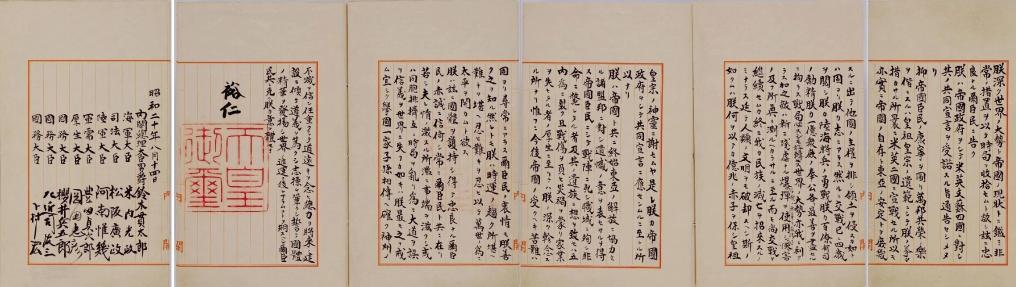 朕深ク世界ノ大勢ト帝國ノ現狀トニ鑑ミ非
常ノ措置ヲ以テ時局ヲ收拾セムト欲シ茲ニ忠
良ナル爾臣民ニ告ク
朕ハ帝國政府ヲシテ米英支蘇四國ニ對シ
其ノ共同宣言ヲ受諾スル旨通告セシメタ
リ
抑〻帝國臣民ノ康寧ヲ圖リ萬邦共榮ノ樂
ヲ偕ニスルハ皇祖皇宗ノ遺範ニシテ朕ノ拳々
措カサル所曩ニ米英二國ニ宣戰セル所以モ
亦實ニ帝國ノ自存ト東亞ノ安定トヲ庶幾
スルニ出テ他國ノ主權ヲ排シ領土ヲ侵スカ如キ
ハ固ヨリ朕カ志ニアラス然ルニ交戰已ニ四歲
ヲ閱シ朕カ陸海將兵ノ勇戰朕カ百僚有司
ノ勵精朕カ一億衆庶ノ奉公各〻最善ヲ盡セルニ
拘ラス戰局必スシモ好轉セス世界ノ大勢亦我ニ利アラ
ス加之敵ハ新ニ殘虐ナル爆彈ヲ使用シテ頻ニ無辜ヲ殺傷シ慘害ノ
及フ所眞ニ測ルヘカラサルニ至ル而モ尚交戰ヲ
繼續セムカ終ニ我カ民族ノ滅亡ヲ招來スルノ
ミナラス延テ人類ノ文明ヲモ破却スヘシ斯ノ
如クムハ朕何ヲ以テカ億兆ノ赤子ヲ保シ皇祖
皇宗ノ神靈ニ謝セムヤ是レ朕カ帝國
政府ヲシテ共同宣言ニ應セシムルニ至レル所
以ナリ
朕ハ帝國ト共ニ終始東亞ノ解放ニ協力セ
ル諸盟邦ニ對シ遺憾ノ意ヲ表セサルヲ得
ス帝國臣民ニシテ戰陣ニ死シ職域ニ殉シ非
命ニ斃レタル者及其ノ遺族ニ想ヲ致セハ五
內爲ニ裂ク且戰傷ヲ負ヒ災禍ヲ蒙リ家業
ヲ失ヒタル者ノ厚生ニ至リテハ朕ノ深ク軫念ス
ル所ナリ惟フニ今後帝國ノ受クヘキ苦難ハ
固ヨリ尋常ニアラス爾臣民ノ衷情モ朕善
ク之ヲ知ル然レトモ朕ハ時運ノ趨ク所堪ヘ
難キヲ堪ヘ忍ヒ難キヲ忍ヒ以テ萬世ノ爲ニ
太平ヲ開カムト欲ス
朕ハ茲ニ國體ヲ護持シ得テ忠良ナル爾臣
民ノ赤誠ニ信倚シ常ニ爾臣民ト共ニ在リ
若シ夫レ情ノ激スル所濫ニ事端ヲ滋クシ或
ハ同胞排擠互ニ時局ヲ亂リ爲ニ大道ヲ誤
リ信義ヲ世界ニ失フカ如キハ朕最モ之ヲ戒
ム宜シク擧國一家子孫相傳ヘ確ク神州ノ
不滅ヲ信シ任重クシテ道遠キヲ念ヒ總力ヲ將來ノ建
設ニ傾ケ道義ヲ篤クシ志操ヲ鞏クシ誓テ國體
ノ精華ヲ發揚シ世界ノ進運ニ後レサラムコトヲ期スヘシ爾臣
民其レ克ク朕カ意ヲ體セヨ
裕仁
天皇
御璽
昭和二十年八月十四日
內閣總理大臣男爵 鈴木貫太郎
海軍大臣 米內光政
司法大臣 松阪廣政
陸軍大臣 阿南惟幾
軍需大臣 豐田貞次郎
厚生大臣 岡田忠彥
國務大臣 櫻井兵五郎
國務大臣 左近司政三
國務大臣 下村宏